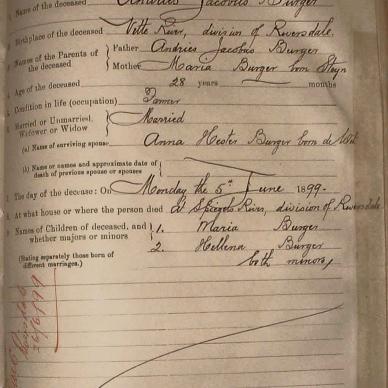 Name of the deceased Andries Jacobus Burger
Birthplace of the deceased Vette River, division of Riversdale.
Names of the Parents of the deceased { Father Andries Jacobus Burger
Mother Maria Burger born Steyn
Age of the deceased 28 years months
Condition in life (occupation) Farmer
Married or Unmarried, Widower or Widow } Married
(a) Name of surviving spouse Anna Hester Burger born de
(b) Name or names and approximate date of death of previous spouse or spouses
The day of the decease: On Monday the 5th June 1899.
At what house or where the person died At Spiegels River, division of Riversdale
Names of Children of deceased, and whether majors or minors } 1. Maria Burger
2. Hellena Burger
(Stating separately those born of different marriages.) both minors,